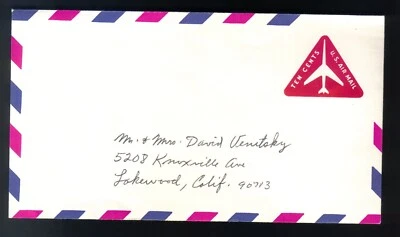 TEN CENTS
U.S. AIR MAIL
Mr. & Mrs. David Venitsky
5208 Knoxville Ave
Lakewood, Calif. 90713